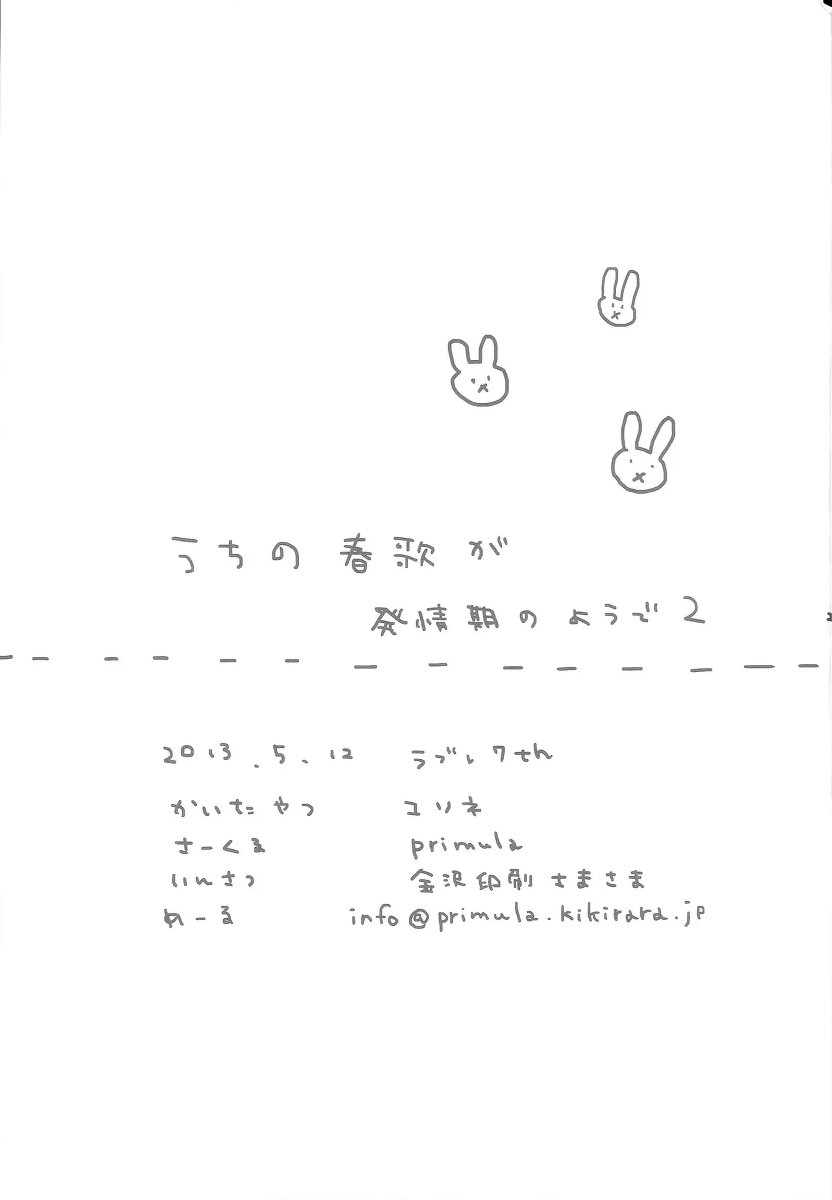 うちの春歌が
発情期のようで2
2013.5.12 ラブレ7さん
かいたやつ ユリネ
さーくる primula
いんさつ 金沢印刷さまさま
めーる info@primula.kikirara.jp